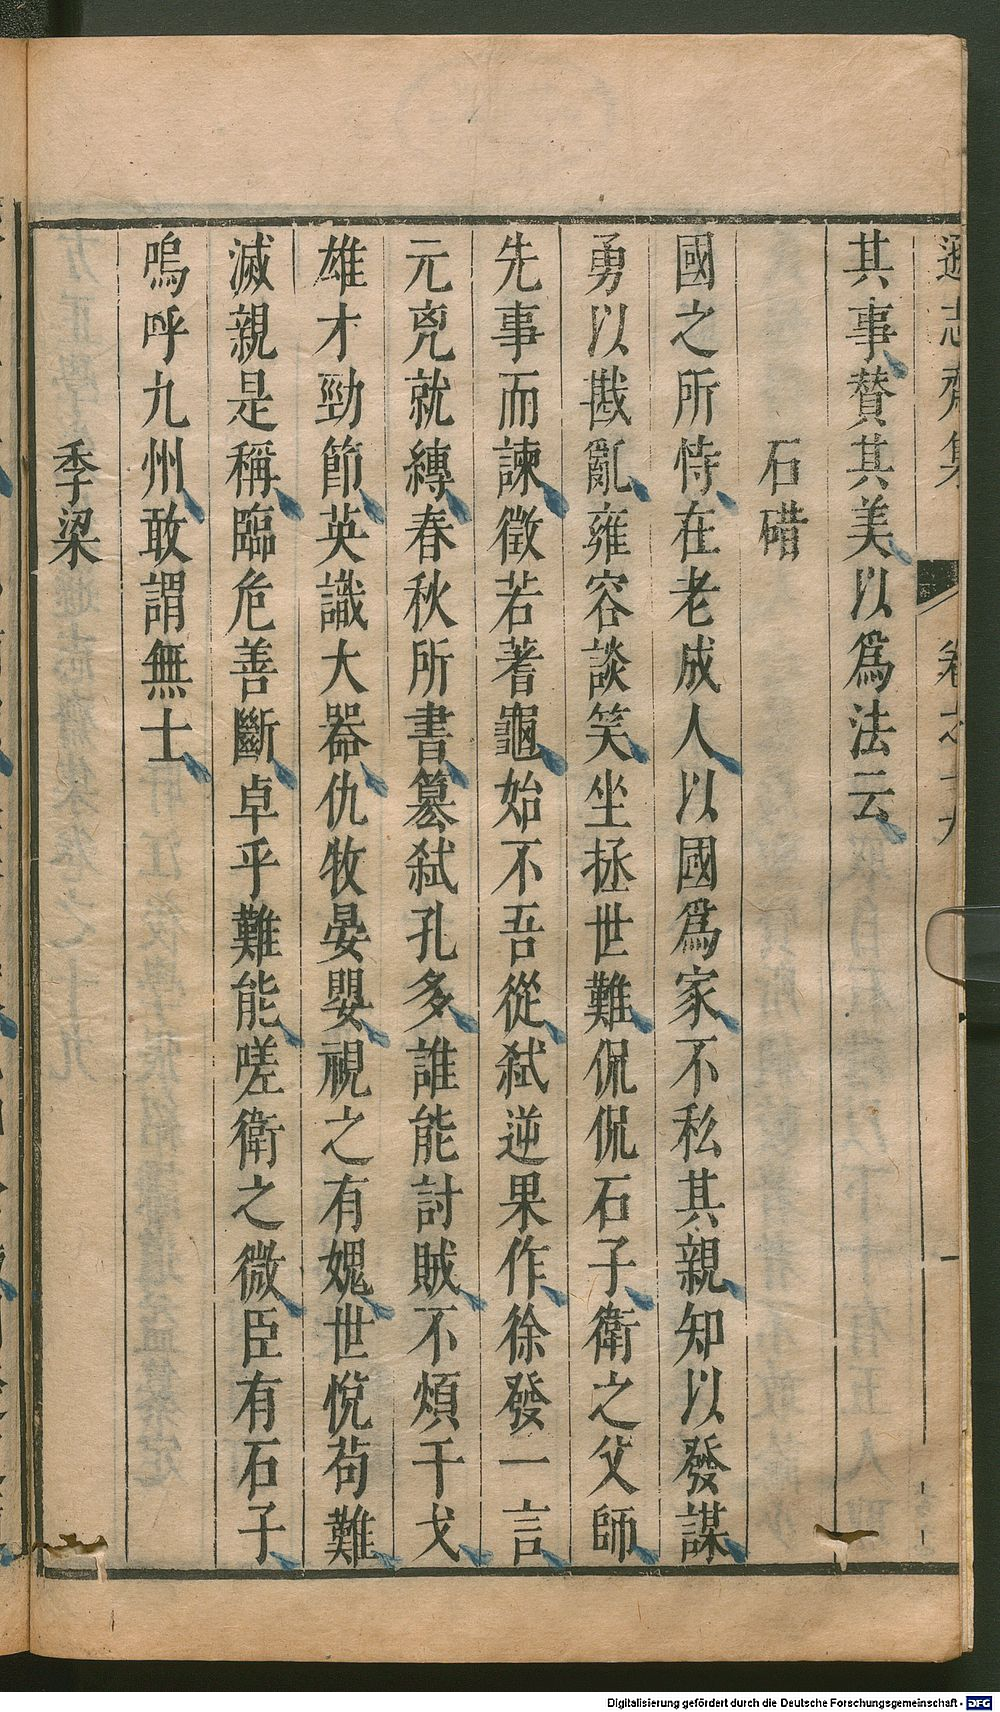 遜志齋集 卷之十九 一
其事贊其美以爲法云
石碏
國之所恃在老成人以國爲家不私其親知以發謀
勇以戡亂雍容談笑坐拯世難侃侃石子衛之父師
先事而諫徵若蓍龜始不吾從弑逆果作徐發一言
元兇就縛春秋所書篡弑孔多誰能討賊不煩干戈
雄才勁節英識大器仇牧晏嬰視之有媿世悅苟難
滅親是稱臨危善斷卓乎難能嗟衛之微臣有石子
嗚呼九州敢謂無士
季梁
Digitalisierung gefördert durch die Deutsche Forschungsgemeinschaft - DFG